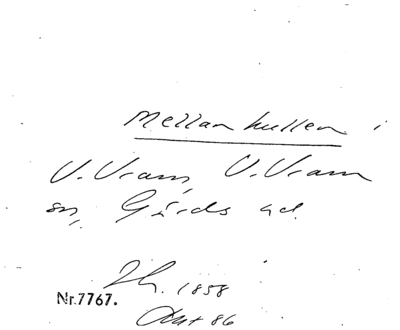 Mellankullen i
V. Vram, V. Vram
sn, Gärds hd.
Th. 1858
Nr. 7767.
Okt 86